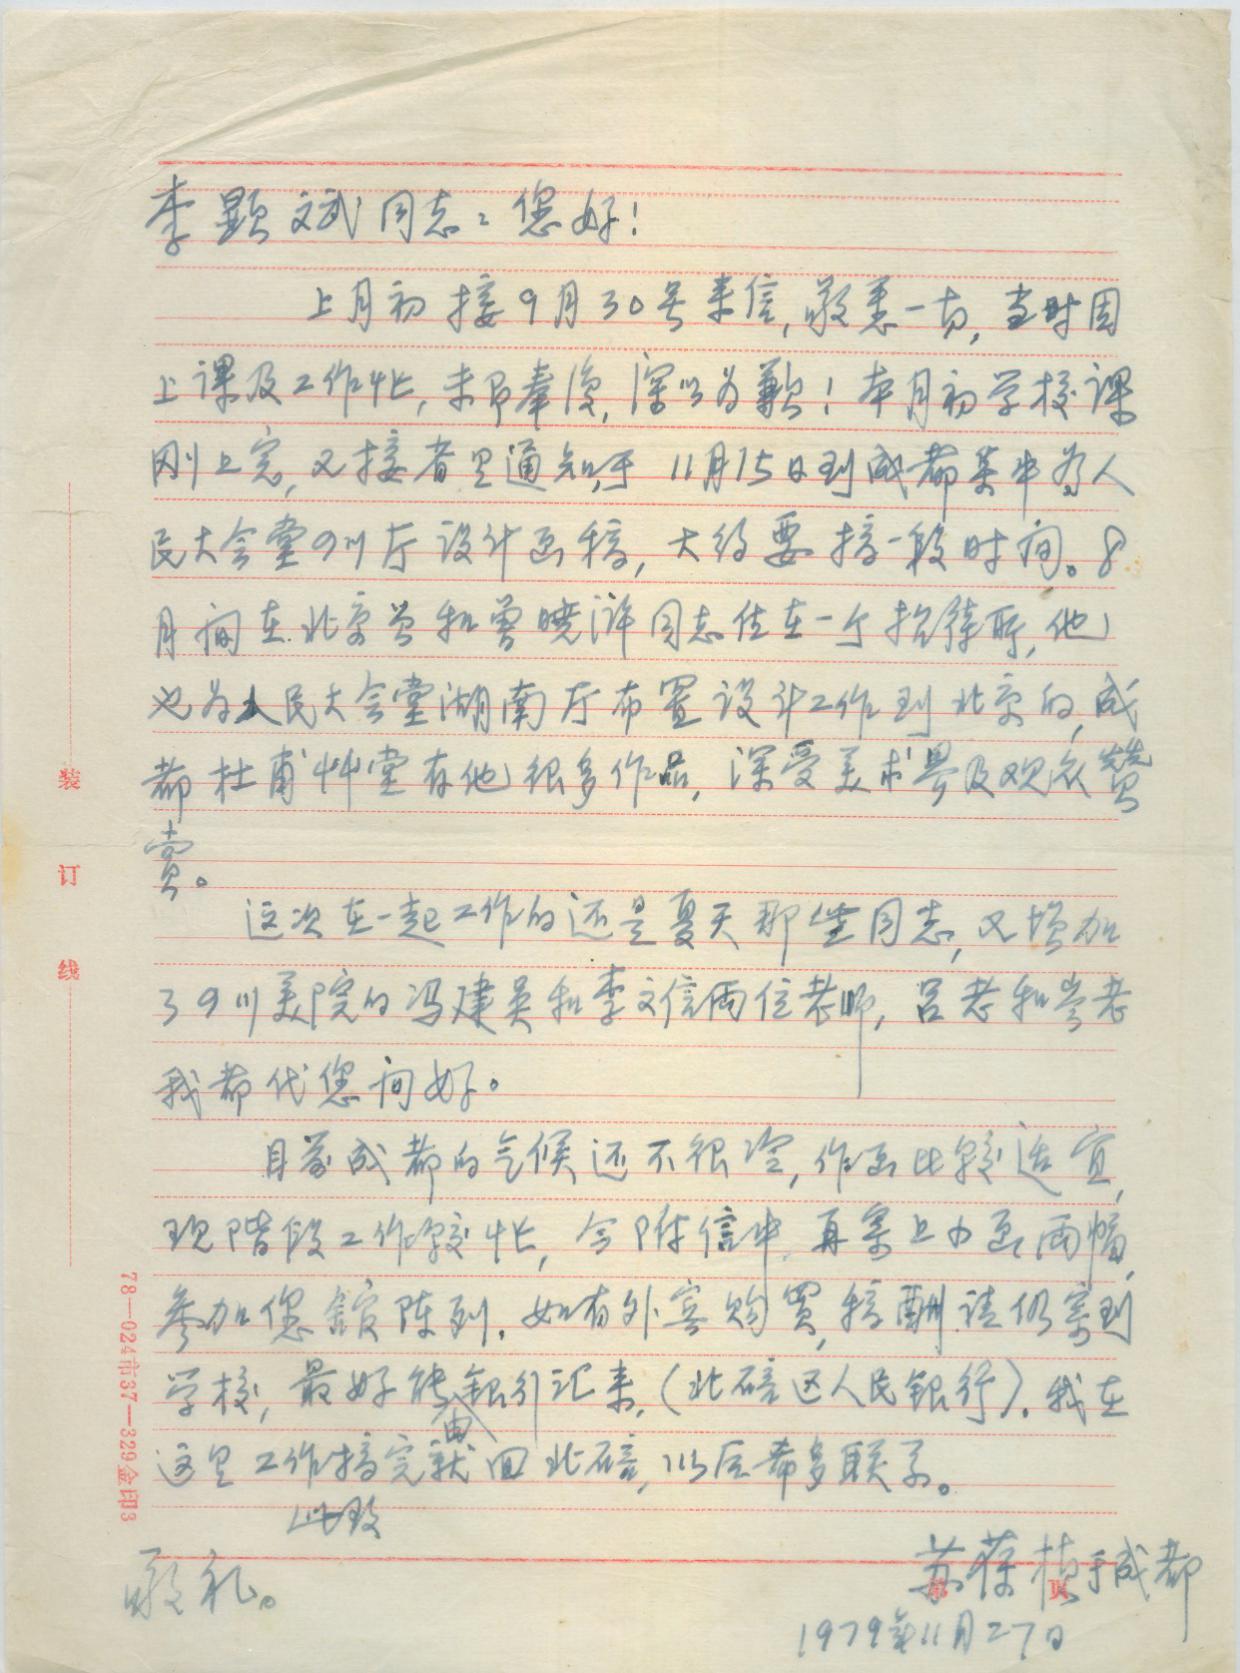 李顕文斌同志：您好！
上月初接9月30号来信，敬悉一切，当时因
上课及工作忙，未即奉復，深以为歉！本月初学校课
刚上完，又接省里通知，于11月15日到成都集中为人
民大会堂四川厅设计画稿，大约要搞一段时间。8
月间在北京曾和曾晓浒同志住在一个招待所，他
也为人民大会堂湖南厅布置设计工作到北京的，成
都杜甫艸堂有他很多作品，深受美术界及观众赞
赏。
这次在一起工作的还是夏天那些同志，又增加
了四川美院的冯建吴和李文信両位老师，吕老和岑老
我都代您问好。
目前成都的气候还不很冷，作画比较适宜，
现阶段工作较忙，今附信中再寄上力画両幅，
参加您舘陈列，如有外宾购買，稿酬请仍寄到
学校，最好能由銀行汇来，（北碚区人民銀行）。我在
这里工作搞完就回北碚，以后希多联系。
此致
敬礼。
苏葆桢于成都
1979年11月27日
装
订
线
78—024市37—329金印3
第
页